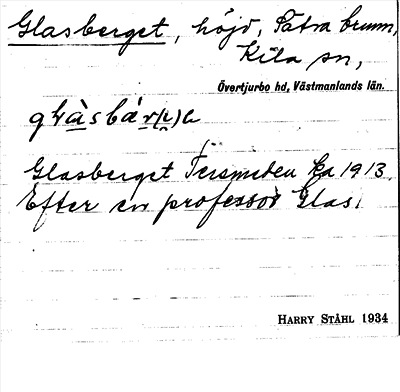 Glasberget, höjd, Sätra brunn,
Kila sn,
Övertjurbo hd, Västmanlands län.
Glasberget Tersmeden ka 1913.
Efter en professor Glas.
HARRY STÅHL 1934